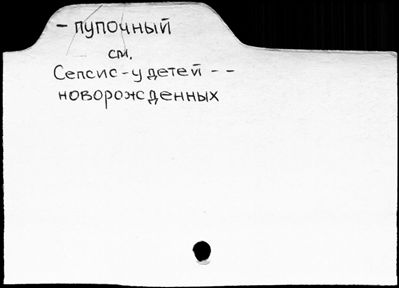 - пупочный
см.
Сепсис - у детей - -
новорожденных